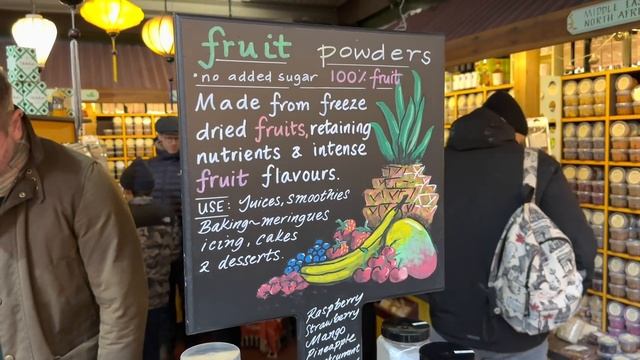 fruit powders
•no added sugar 100% fruit
Made from freeze
dried fruits, retaining
nutrients & intense
fruit flavours.
USE: Juices, smoothies
Baking~meringues
icing, cakes
& desserts.
Raspberry
Strawberry
Mango
Pineapple
MIDDLE EA
NORTH AFRI